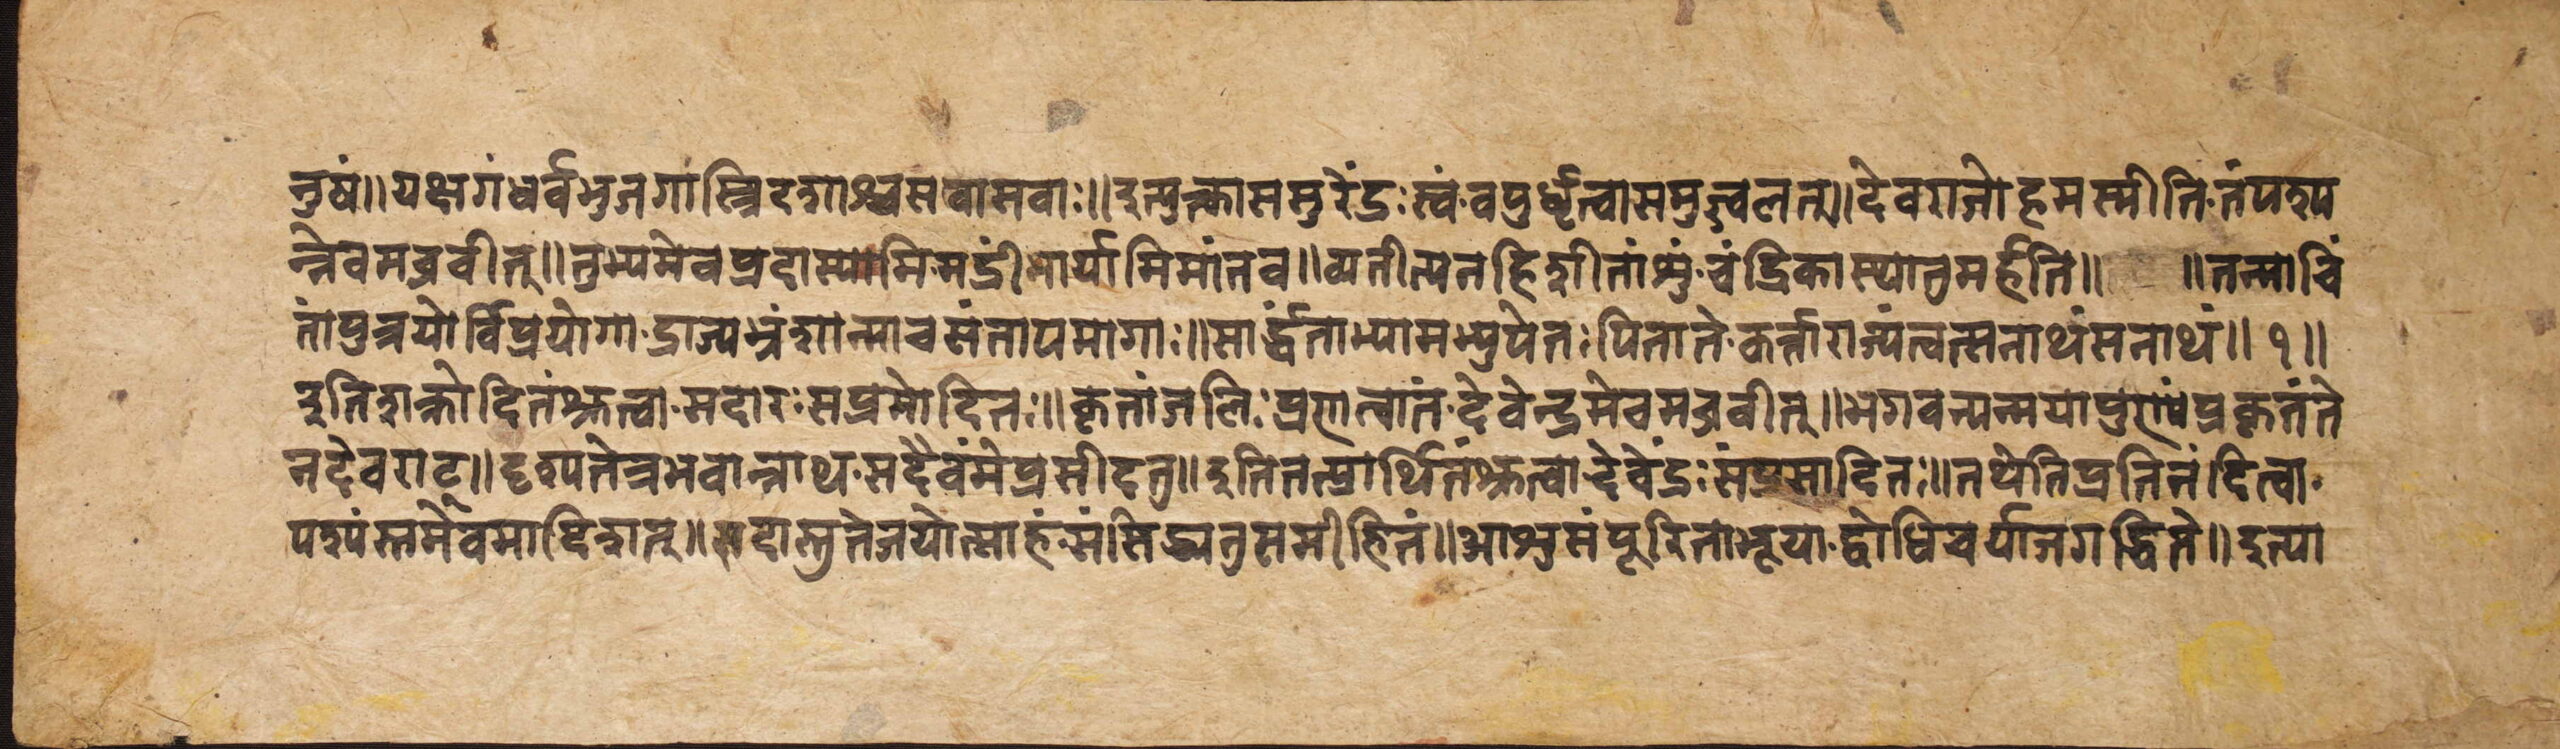 नुषं॥ यक्षगंधर्वभुजगास्त्रिदशाश्चसवासवाः॥ इत्युक्त्वाससुरेंद्रःस्वंवपुर्धृत्वासमुज्ज्वलत्॥ देवराजोहमस्मीतितंपश्य
न्नेवमब्रवीत्॥ तुभ्यमेवप्रदास्यामिमद्रींभार्यामिमांतव॥ व्यतीत्यनहिशीतांशुंचंद्रिकास्थातुमर्हति॥ ॥ तन्माचिं
तांपुत्रयोर्विप्रयोगाद्राज्यभ्रंशान्माचसंतापमागाः॥ सार्द्धंताभ्यामभ्युपेतःपितातेकर्त्ताराज्यंत्वत्सनाथंसनाथं॥ १॥
इतिशक्रोदितंश्रुत्वासदारःसप्रमोदितः॥ कृतांजलिःप्रणत्वातंदेवेन्द्रमेवमब्रवीत्॥ भगवन्यन्मयापुण्यंप्रकृतंते
नदेवराट्॥ दृश्यतेत्रभवान्नाथसदैवंमेप्रसीदतु॥ इतितत्प्रार्थितंश्रुत्वादेवेंद्रःसंप्रसादितः॥ तथेतिप्रतिनंदित्वा
पश्यंस्तमेवमादिशत्॥ सदास्तुतेजयोत्साहंसंसिद्ध्यतुसमीहितं॥ आशुसंपूरिताभूयाद्बोधिचर्याजगद्धिते॥ इत्या